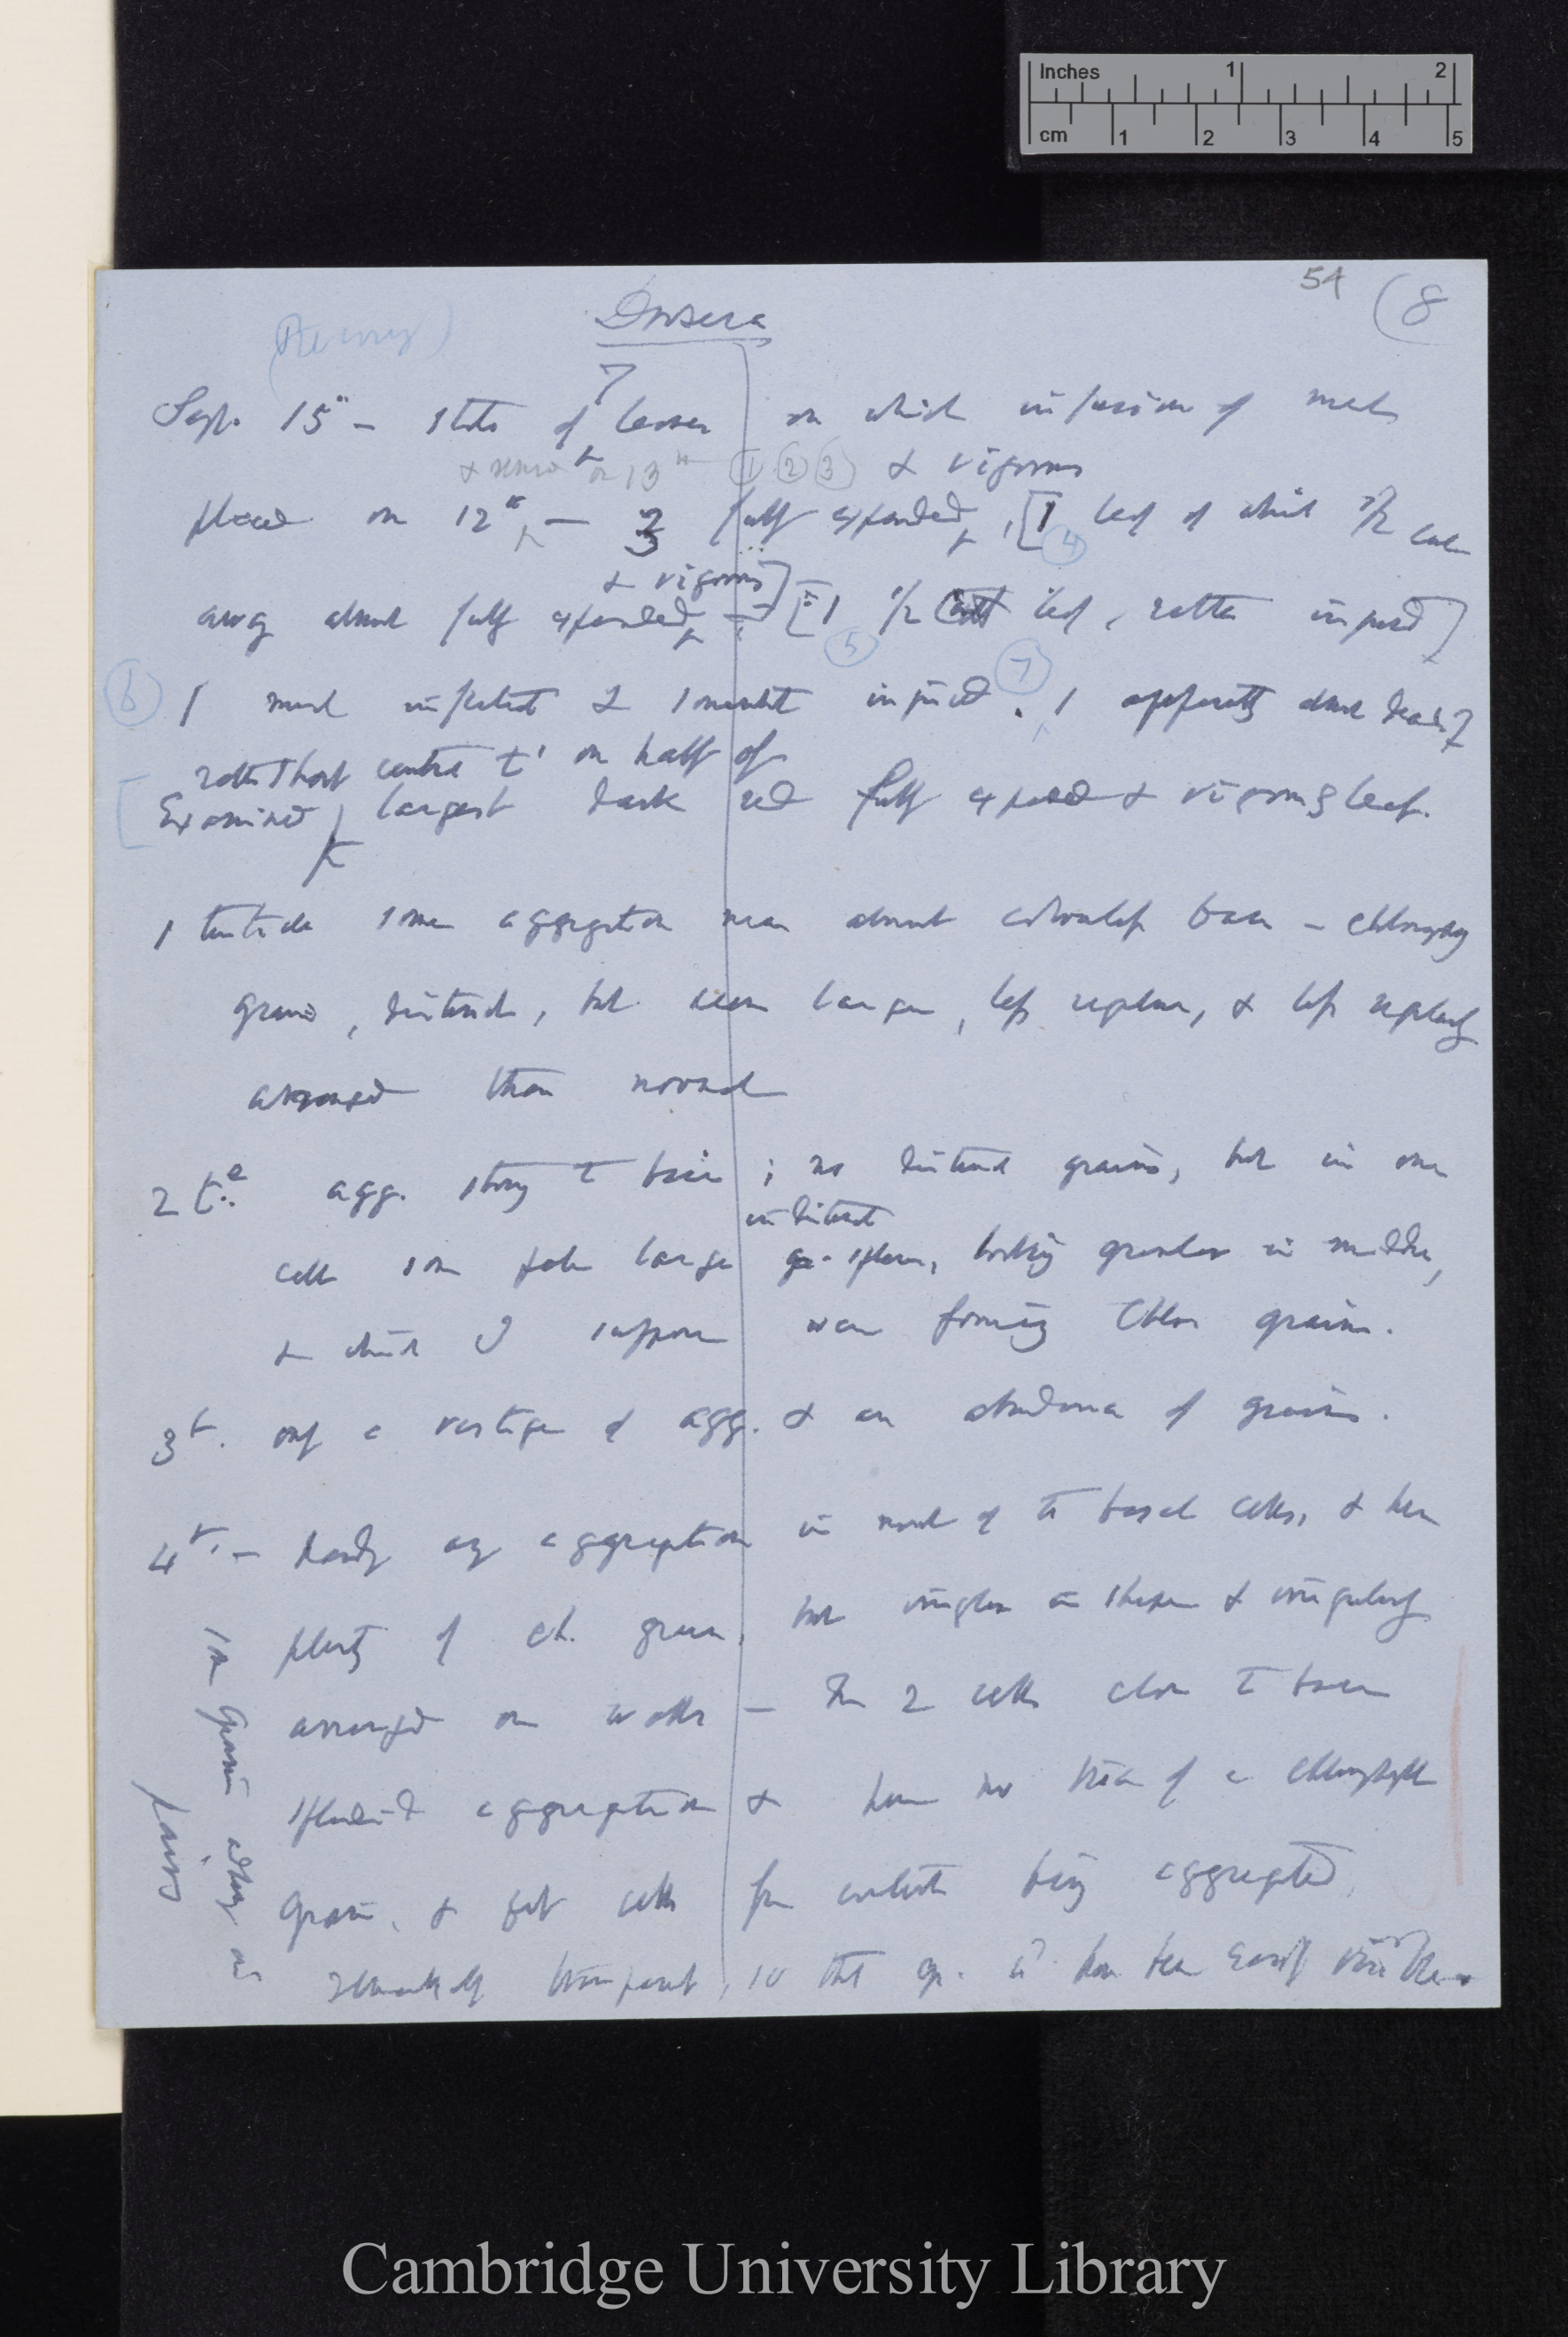 Inches 1 2
cm 1 2 3 4 5
54 (8
Drosera
7
Sept. 15th — State of leaves on which infusion of meat
on 13th ① ② ③ & vigorous
placed on 12th — 3 fully expanded, [1 leaf of which 1/2 cut
④
& vigorous]
away almost fully expanded — [1 1/2 leaf, rather injured]
⑤
⑥ 1 much inflected & somewhat injured. ⑦ 1 apparently almost dead?
rather short central t. on half of
[Examined largest dark red fully expanded & vigorous leaf.
1 tentacle some aggregation near almost colourless base — chlorophyll
grains, distinct, but seem larger, less regular, & less regularly
arranged than normal
2 t. agg. strong to base; no distinct grains, but in one
indistinct
cell some pale large spheres, looking granular in middle,
& which I suppose were forming Chlor grains.
3 t. only a vestige of agg. & an abundance of grains.
4 t. — hardly any aggregation in most of the basal cells, & here
plenty of ch. grains, but irregular in shape & irregularly
arranged on walls — The 2 cells close to base
aggregation & here no trace of a chlorophyll
grain, & yet cells from contents being aggregated,
remarkably transparent, so that gr. have been easily visible
some grains adhering in
pairs
Cambridge University Library